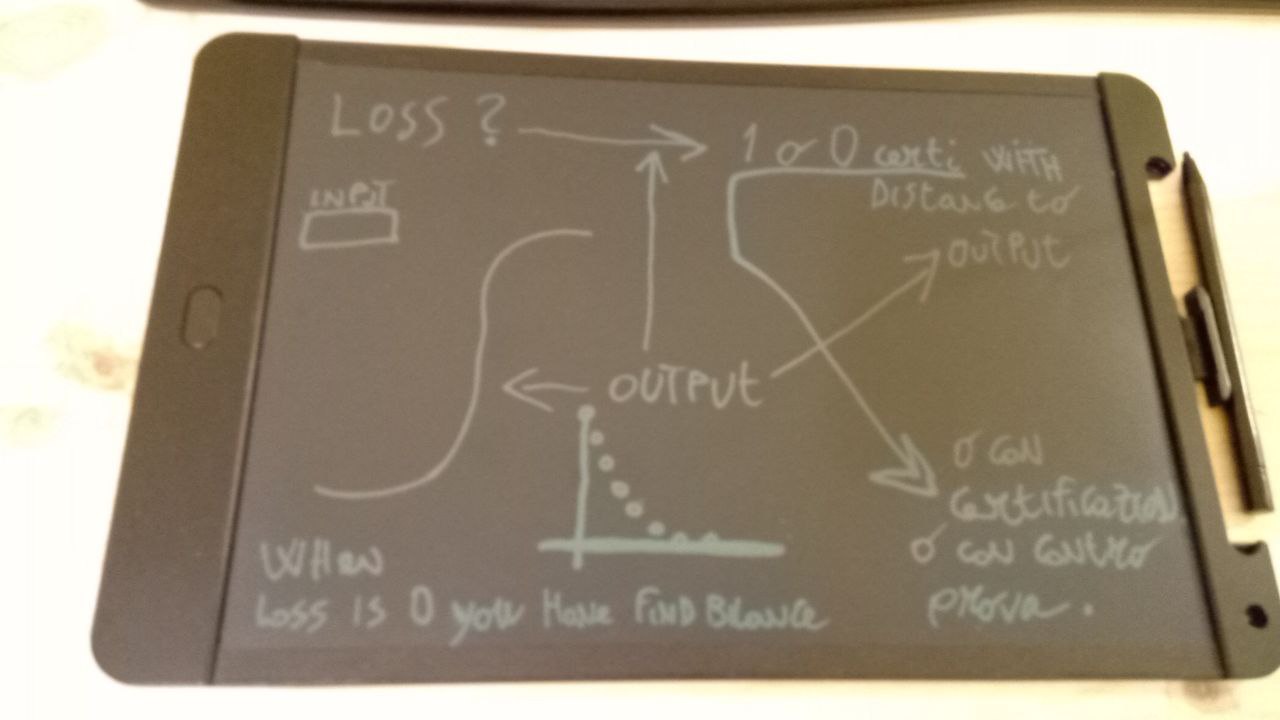 LOSS ?
1 o 0 certi WITH
DIStance to
OUTPUT
INPUT
OUTPUT
o con
certificazion
o con contro
prova.
WHen
Loss is 0 you Have FIND BLance